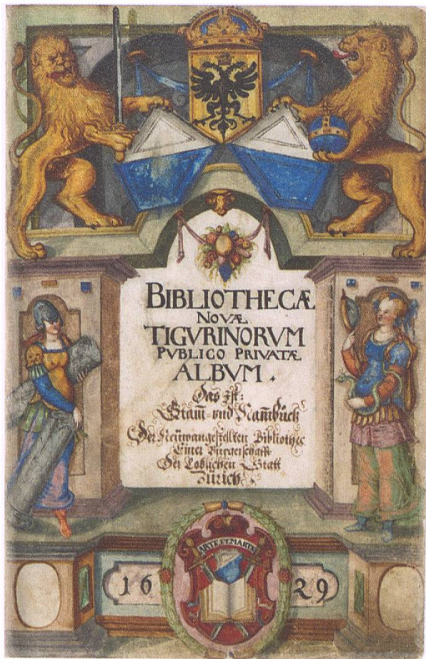 BIBLIOTHECÆ
NOVÆ
TIGVRINORVM
PVBLICO PRIVATÆ
ALBVM.
Das Ist:
Stam̃ und Nam̃büch
Der Neüwangestellten Bibliothec
Einer Burgerschafft
Der Loblichen Statt
Zürich.
ARTE ET MARTE
16 29